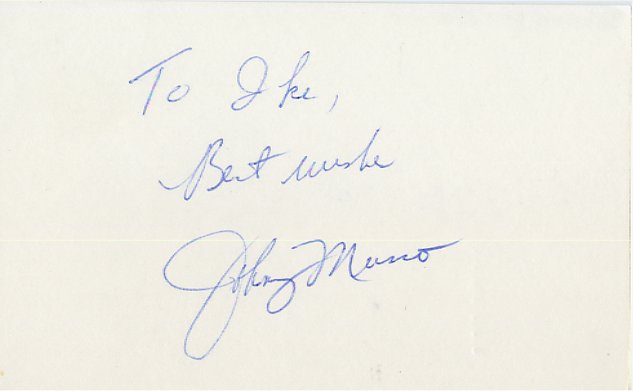 To Ike,
Best wishes
Johnny Musso